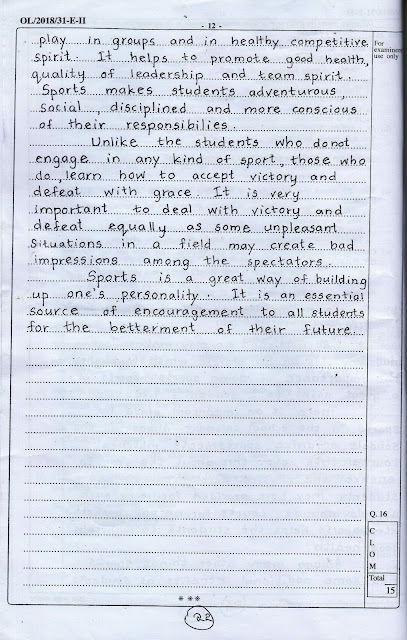 OL/2018/31-E-II
- 12 -
For
examiners'
use only
play in groups and in healthy competitive
spirit. It helps to promote good health,
quality of leadership and team spirit.
Sports makes students adventurous,
social, disciplined and more conscious
of their responsibilies.
Unlike the students who do not
engage in any kind of sport, those who
do, learn how to accept victory and
defeat with grace. It is very
important to deal with victory and
defeat equally as some unpleasant
situations in a field may create bad
impressions among the spectators.
Sports is a great way of building
up one's personality. It is an essential
source of encouragement to all students
for the betterment of their future.
Q. 16
C
L
O
M
Total
15
***
22